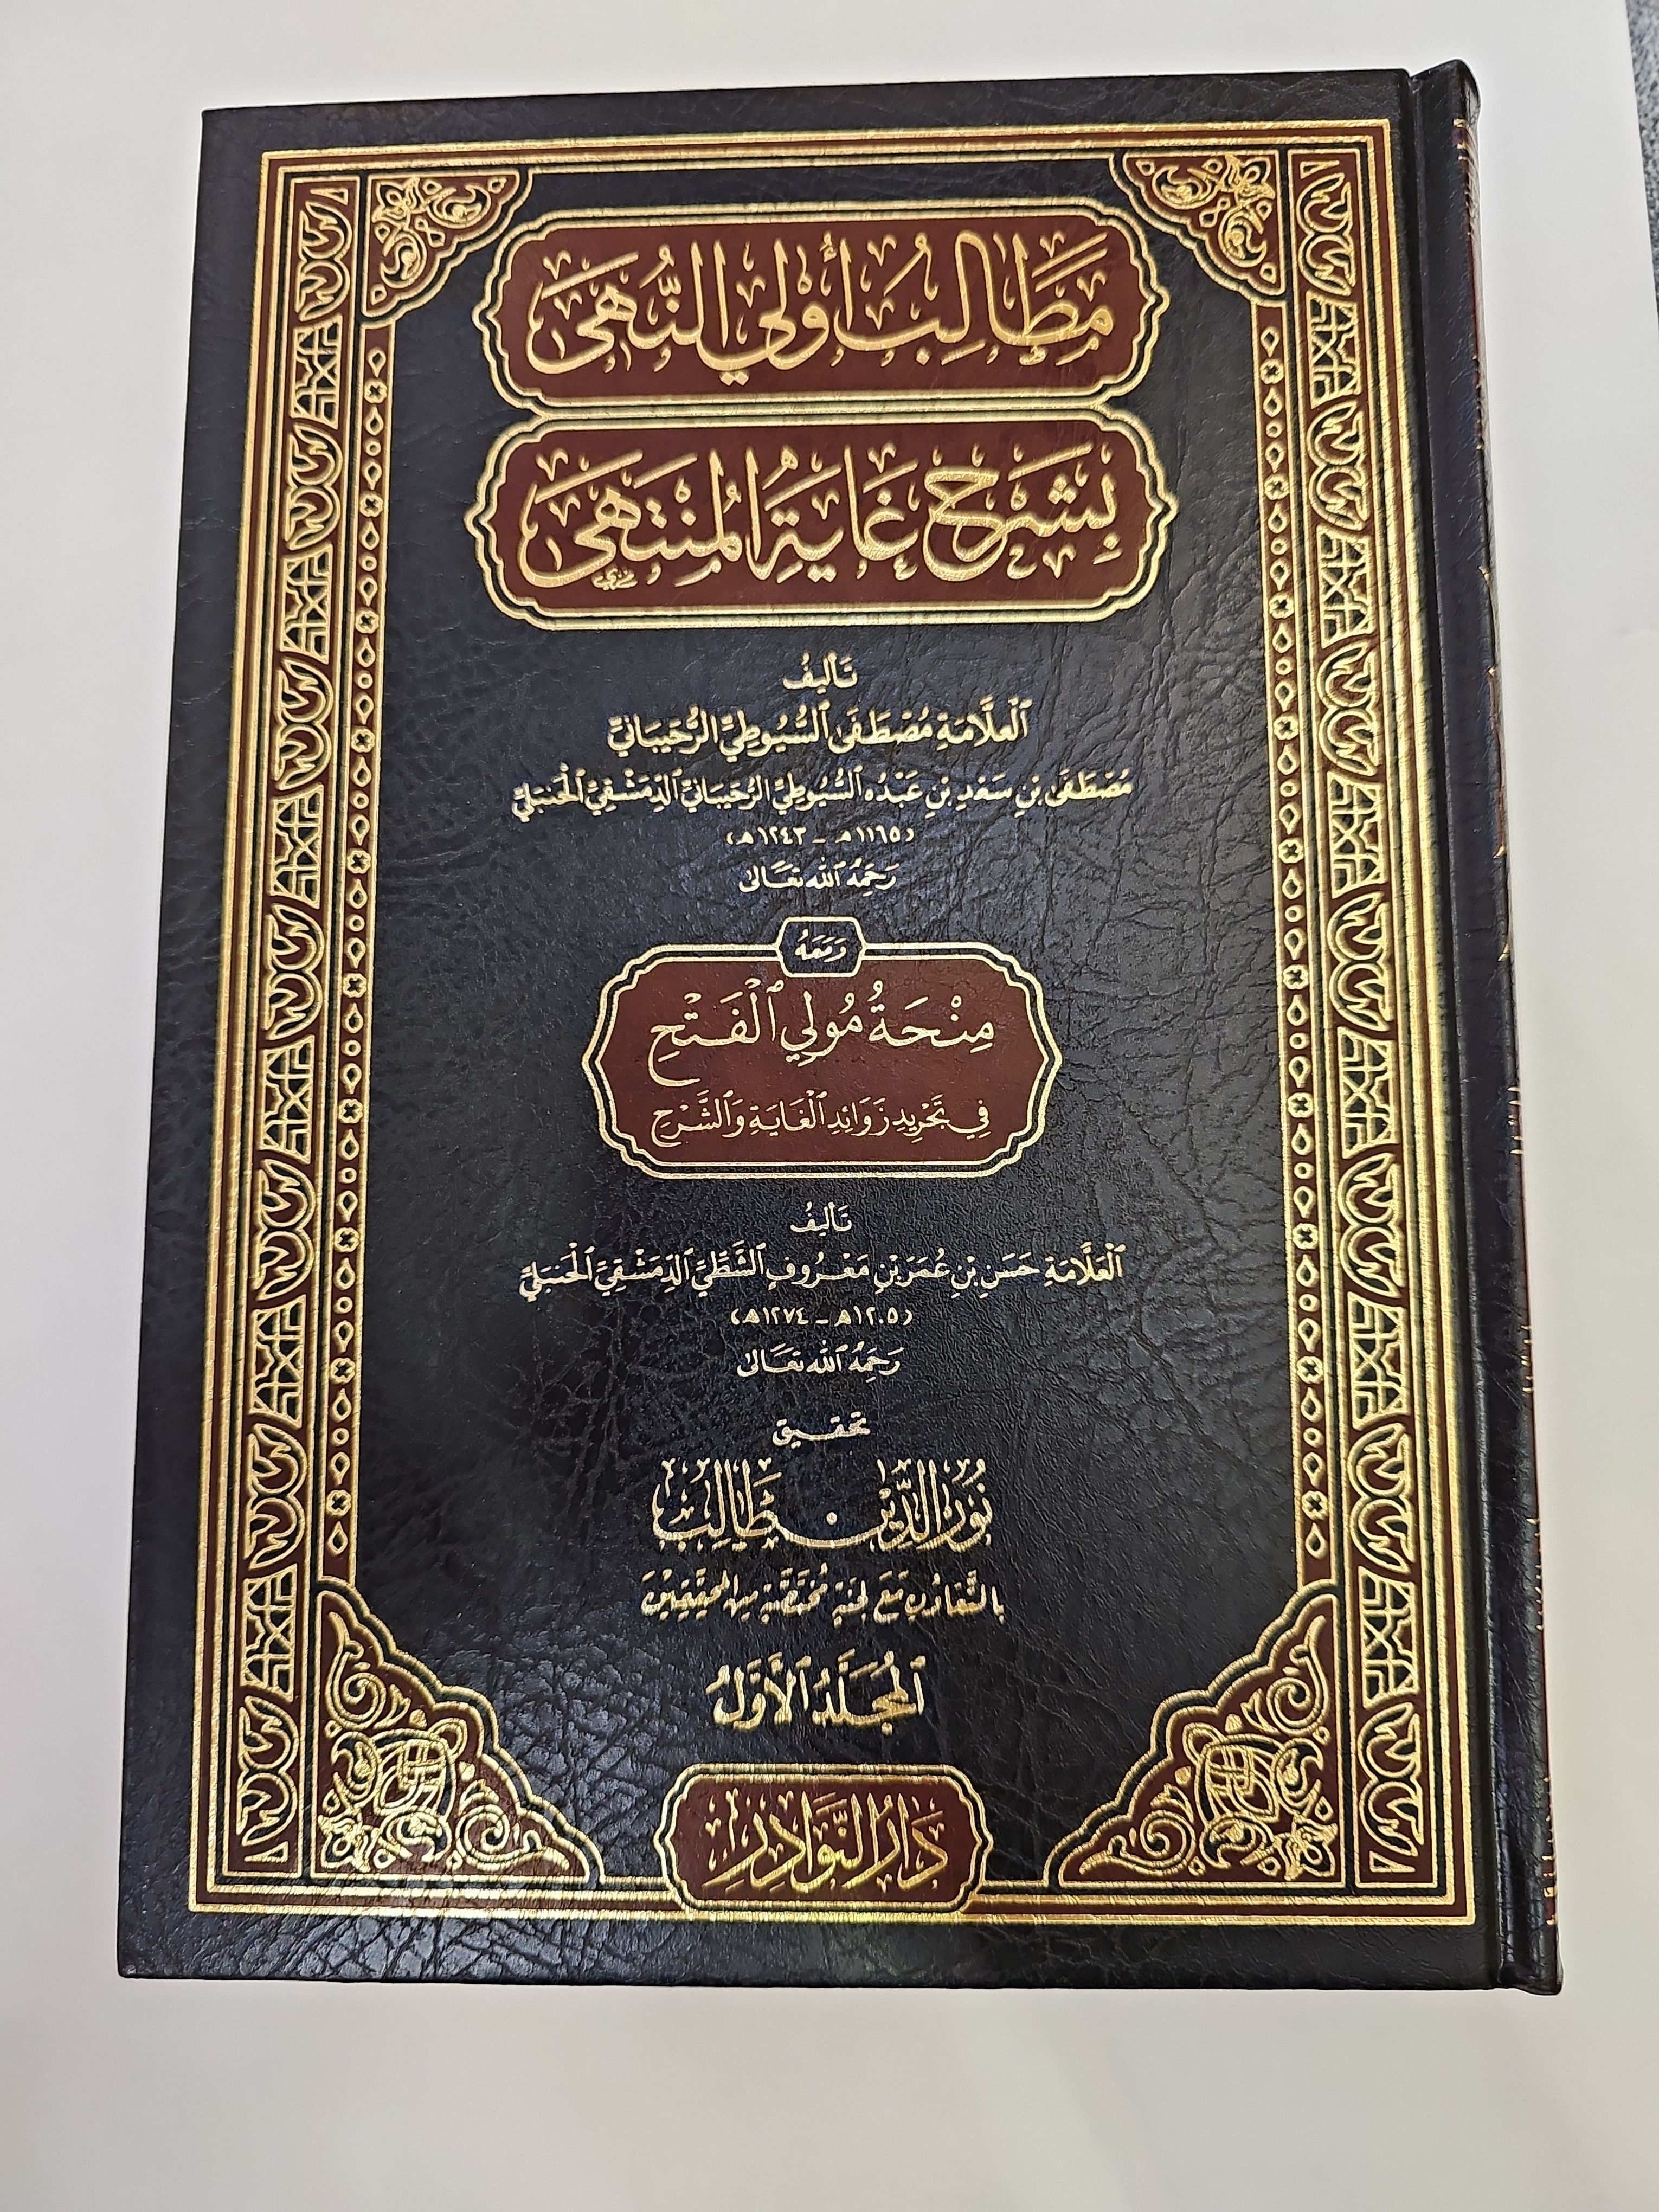 مَطَالِبُ أُولِي النُّهَى
بِشَرْحِ غَايَةِ المُنْتَهَى
تَأْلِيفُ
ٱلْعَلَّامَةِ مُصْطَفَى ٱلسُّيُوطِيِّ ٱلرُّحَيبَانِيِّ
مُصْطَفَى بْنِ سَعْدِ بْنِ عَبْدُه ٱلسُّيُوطِيِّ ٱلرُّحَيبَانِيِّ ٱلدِّمَشْقِيِّ ٱلْحَنبَلِيِّ
(١١٦٥هـ - ١٢٤٣هـ)
رَحِمَهُ ٱللهُ تَعَالَىٰ
وَمَعَهُ
مِنْحَةُ مُولِي ٱلْفَتْحِ
فِي تَجْرِيدِ زَوَائِدِ ٱلْغَايَةِ وَٱلشَّرْحِ
تَأْلِيفُ
ٱلْعَلَّامَةِ حَسَنِ بْنِ عُمَرَ بْنِ مَعْرُوفٍ ٱلشَّطِّيِّ ٱلدِّمَشْقِيِّ ٱلْحَنبَلِيِّ
(١٢٠٥هـ - ١٢٧٤هـ)
رَحِمَهُ ٱللهُ تَعَالَىٰ
تحقيق
نُورُ الدِّين طَالِبْ
بِالتَّعَاوُنِ مَعَ لَجْنَةٍ مُخْتَصَّةٍ مِنَ المُحَقِّقِينَ
ٱلْمُجَلَّدُ ٱلْأَوَّلُ
دَارُ النَّوَادِرِ